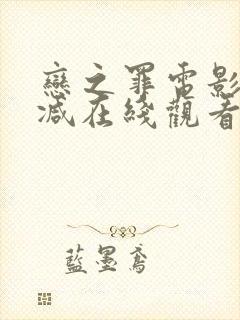 戀之罪電影
減在綫觀看
藍墨鳶